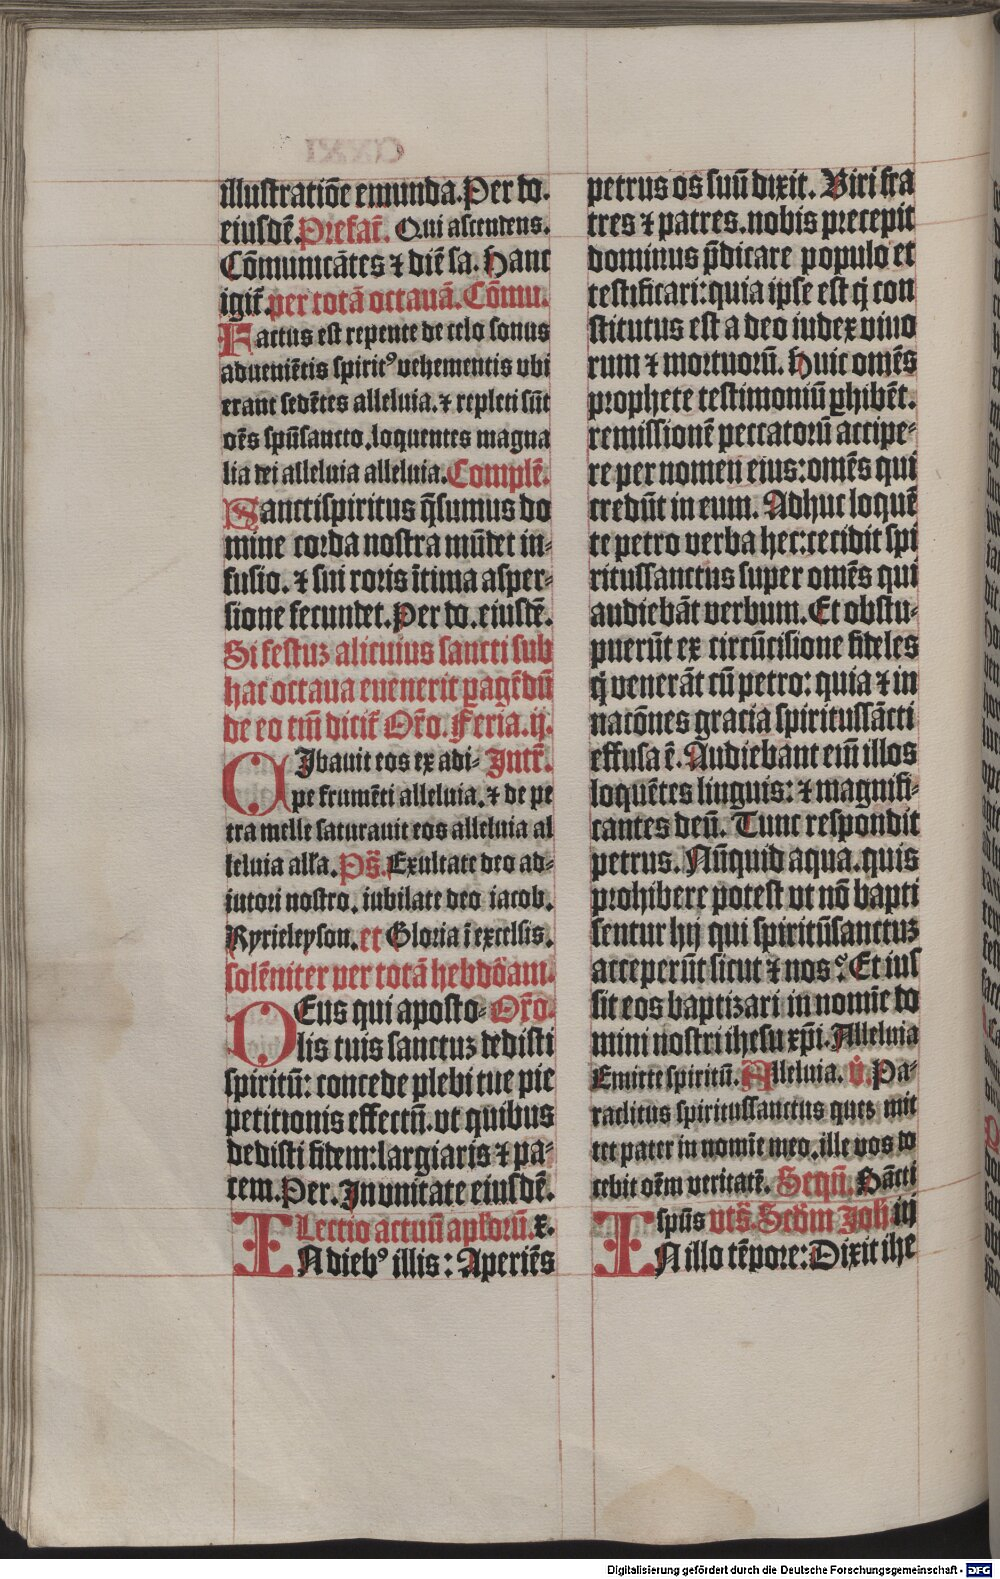 illustratiōe emunda. Per do.
eiusdē. Prefat̄. Qui ascendens.
Cōmunicātes ⁊ diē sa. Hanc
igit̄. per totā octauā. Cōmu.
Factus est repente de celo sonus
adueniētis spiritꝰ vehementis vbi
erant sedētes alleluia. ⁊ repleti sūt
oēs spūsancto, loquentes magna
lia dei alleluia alleluia. Complē.
Sanctispiritus q̄sumus do
mine corda nostra mūdet in-
fusio. ⁊ sui roris ītima asper-
sione fecundet. Per do. eiusdē.
Si festuz alicuius sancti sub
hac octaua euenerit ꝑagēdū
de eo tm̄ dicit̄ Or̄o. Feria. ij.
CIbauit eos ex adi- Intr̄.
pe frumēti alleluia. ⁊ de pe
tra melle saturauit eos alleluia al
leluia all'a. Ps̄. Exultate deo ad-
iutori nostro, iubilate deo iacob.
Kyrieleyson. et Gloria ī excelsis.
solēniter per totā hebdōam.
DEus qui aposto- Or̄o.
lis tuis sanctuz dedisti
spiritū: concede plebi tue pie
petitionis effectū. vt quibus
dedisti fidem: largiaris ⁊ pa-
cem. Per. In vnitate eiusdē.
Lectio actuū apl'orū. x.
IN diebꝰ illis: Aperiēs
petrus os suū dixit. Viri fra
tres ⁊ patres. nobis precepit
dominus p̄dicare populo et
testificari: quia ipse est q̄ con
stitutus est a deo iudex viuo
rum ⁊ mortuorū. Huic omēs
prophete testimoniū ꝑhibēt.
remissionē peccatorū accipe-
re per nomen eius: omēs qui
credūt in eum. Adhuc loquē
te petro verba hec: cecidit spi
ritussanctus super omēs qui
audiebāt verbum. Et obstu-
puerūt ex circūcisione fideles
q̄ venerāt cū petro: quia ⁊ in
nacōnes gracia spiritussācti
effusa ē. Audiebant eīm illos
loquētes linguis: ⁊ magnifi-
cantes deū. Tunc respondit
petrus. Nūquid aqua. quis
prohibere potest vt nō bapti
sentur hij qui spiritūsanctuz
acceperūt sicut ⁊ nos? Et ius
sit eos baptizari in nomīe do
mini nostri ihesu xp̄i. Alleluia
Emitte spiritū. Alleluia. v̄. Pa-
raclitus spiritussanctus quez mit
tet pater in nomīe meo, ille vos do
cebit oēm veritatē. Sequē. Sācti
spūs vts̄. Scd̄m Joh̄. iij
IN illo tēpore: Dixit ihe
CXXI
Digitalisierung gefördert durch die Deutsche Forschungsgemeinschaft - DFG